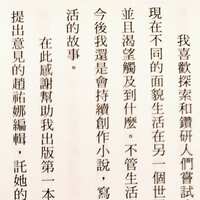 我喜歡探索和鑽研人們嘗試
現在不同的面貌生活在另一個世
並且渴望觸及到什麼。不管生活
今後我還是會持續創作小說,寫
活的故事。
在此感謝幫助我出版第一本
提出意見的趙祐娜編輯,託她的